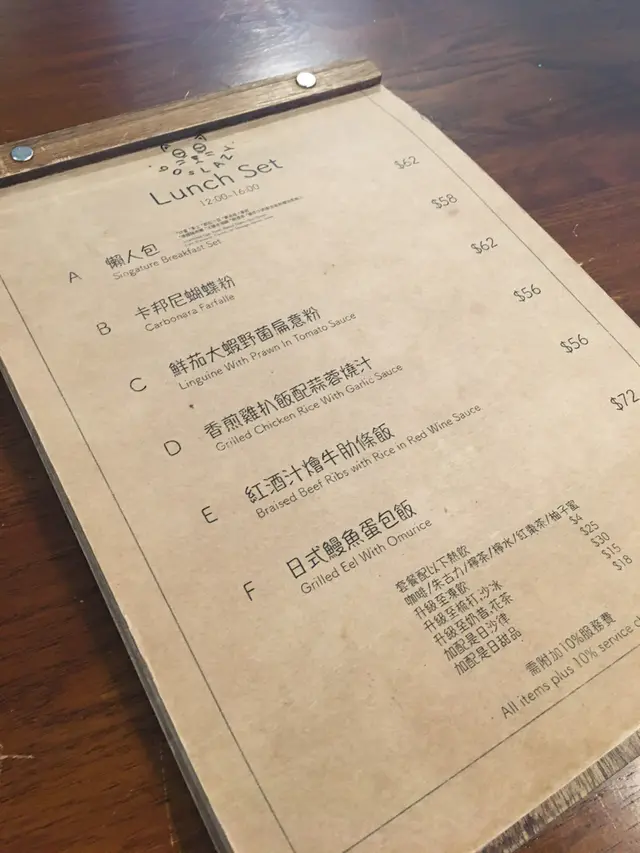 DOSLAZY
Lunch Set
12:00-16:00
A 懶人包 $62
Singature Breakfast Set
B 卡邦尼蝴蝶粉 $58
Carbonara Farfalle
C 鮮茄大蝦野菌扁意粉 $62
Linguine With Prawn In Tomato Sauce
D 香煎雞扒飯配蒜蓉燒汁 $56
Grilled Chicken Rice With Garlic Sauce
E 紅酒汁燴牛肋條飯 $56
Braised Beef Ribs with Rice in Red Wine Sauce
F 日式鰻魚蛋包飯 $72
Grilled Eel With Omurice
套餐配以下熱飲
咖啡/朱古力/檸茶/檸水/紅棗茶/柚子蜜
升級至凍飲 $4
升級至梳打,沙冰 $25
升級至奶昔,花茶 $30
加配是日沙律 $15
加配是日甜品 $18
需附加10%服務費
All items plus 10% service